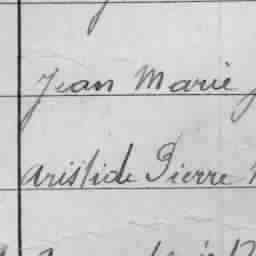 Jean Marie
Aristide Pierre